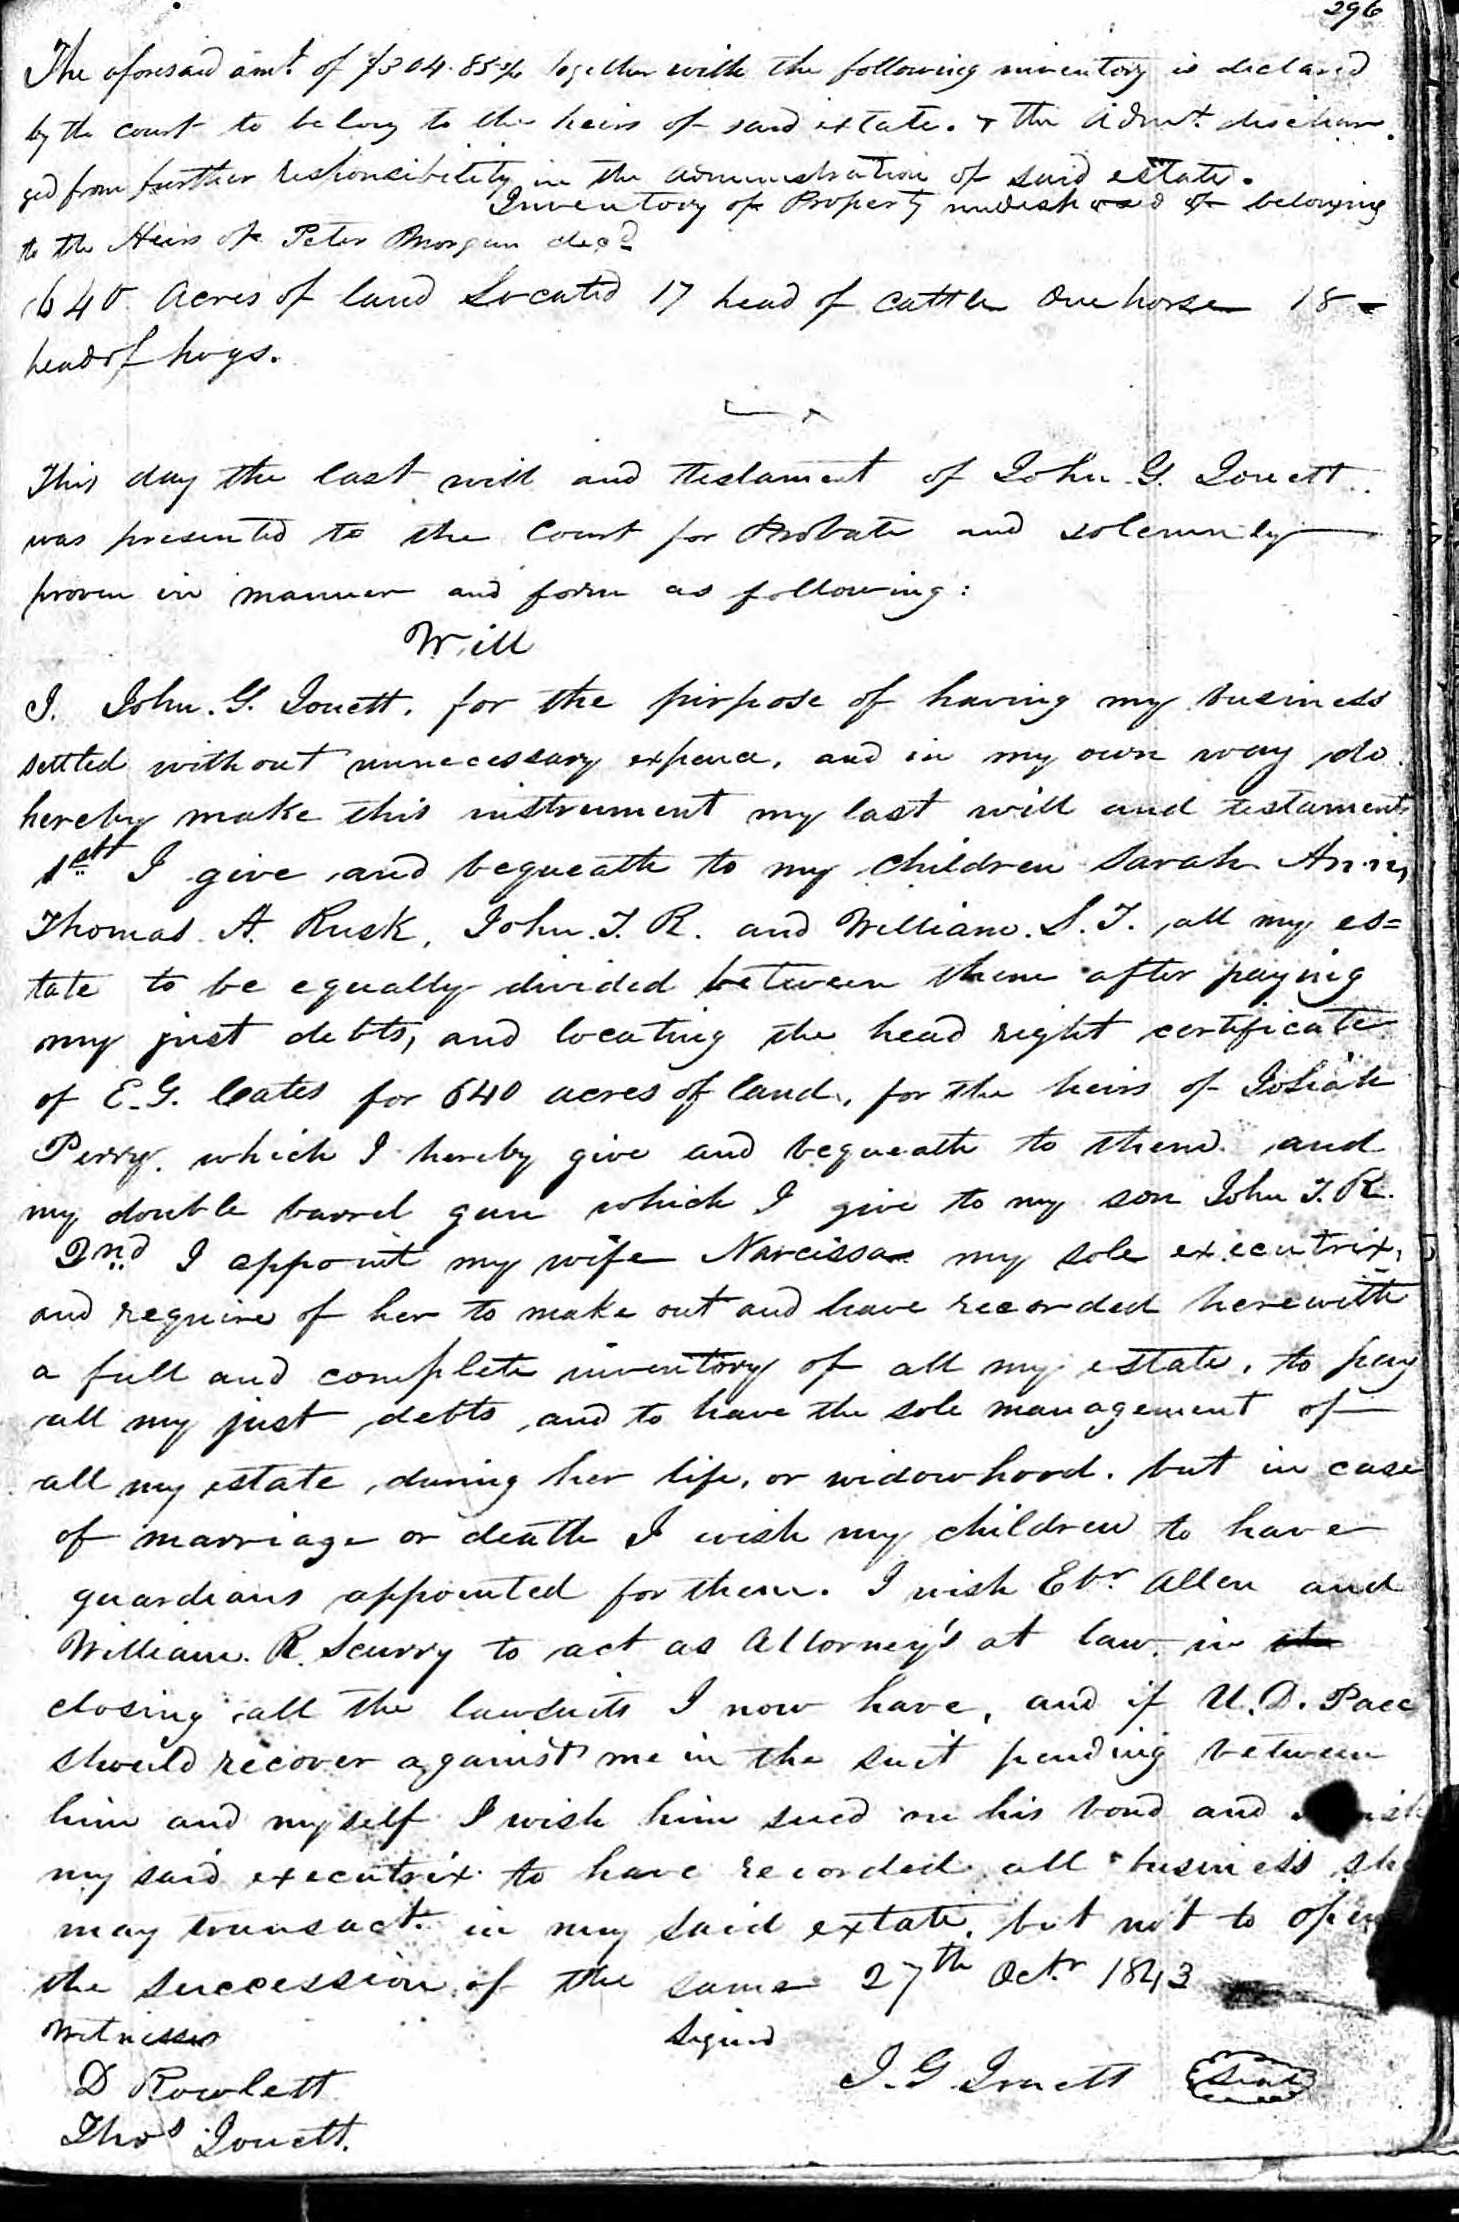 296
The aforesaid amt. of $304.85 together with the following inventory is declared
by the court to belong to the heirs of said estate. & the Admt. dischar-
ged from further responsibility in the administration of said estate.
Inventory of Property undisposed of belonging
to the Heirs of Peter Morgan decd
640 Acres of land Located 17 head of Cattle One horse 18
head of hogs.
This day the last will and testament of John G. Jouett
was presented to the Court for Probate and solemnly
proven in manner and form as following:
Will
I. John. G. Jouett. for the pirpose of having my business
settled without unnecessary expence, and in my own way do
hereby make this instrument my last will and testament
1st I give and bequeath to my children Sarah Ann,
Thomas A. Rusk, John. T. R. and William. S. T. all my es=
tate to be equally divided between them after paying
my just debts, and locating the head right certificate
of E. G. Cates for 640 acres of land, for the heirs of Josiah
Perry. which I hereby give and bequeath to them. and
my double barrel gun which I give to my son John T. R.
2nd I appoint my wife Narcissa my sole executrix,
and require of her to make out and have recorded herewith
a full and complete inventory of all my estate, to pay
all my just debts and to have the sole management of
all my estate during her life, or widowhood. but in case
of marriage or death I wish my children to have
guardians appointed for them. I wish Ebr Allen and
William. R. Scurry to act as Attorney's at law in
closing all the lawsuits I now have, and if U. D. Pace
should recover against me in the suit pending between
him and myself I wish him sued on his bond and
my said executrix to have recorded all business
may transact in my said extate. but not to open
the succession of the same 27th Octr 1843
Witnesses Signed
D Rowlett J. G. Jouett Seal
Thos Jouett.